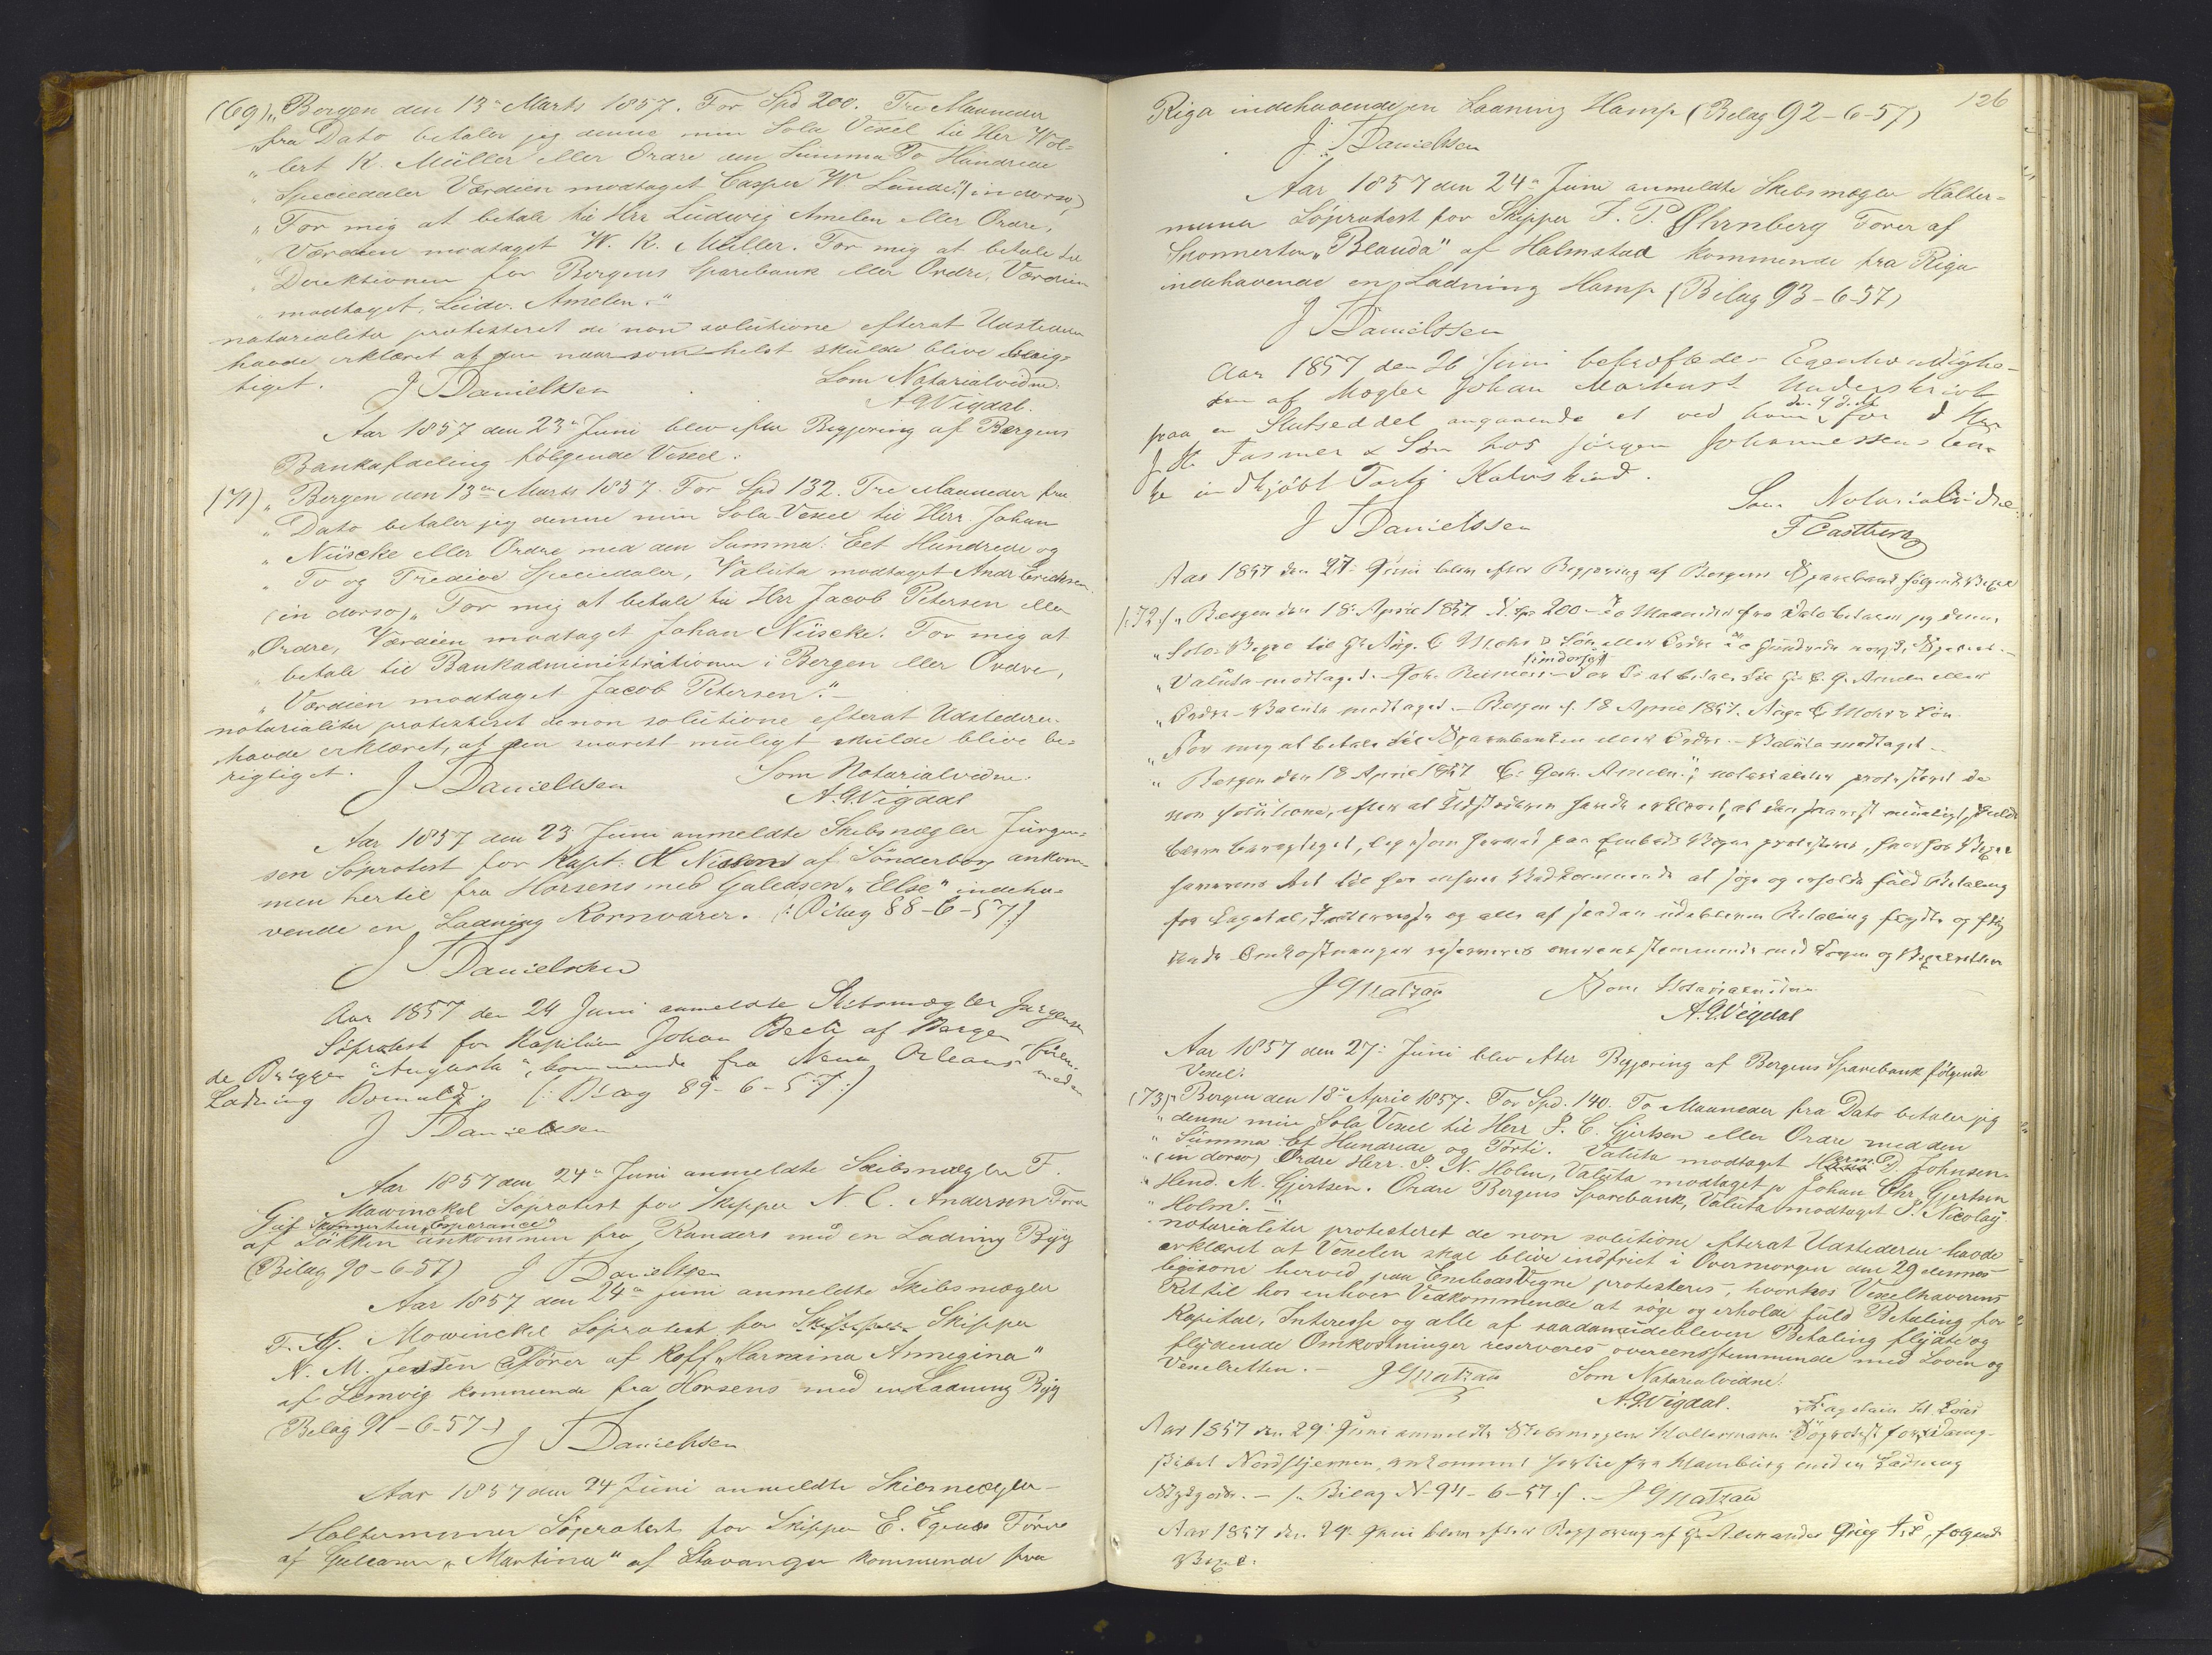 (69) „Bergen den 13de Marts 1857. For Spd 200. Tre Maaneder
„fra Dato betaler jeg denne min Sola Vexel til Her Wol=
„lert K. Müller eller Ordre den Summa To Hundrede
„Speciedaler Værdien modtaget Casper W. Lunde." (in dorso)
„For mig at betale til Hrr Ludwig Amelen eller Ordre,
„Værdien modtaget W. K. Müller. For mig at betale til
„Direktionen for Bergens Sparebank eller Ordre, Værdien
„modtaget, Ludv. Amelen."
notarialiter protesteret de non solutione efterat Udstederen
havde erklæret at den naarsomhelst skulde blive berig-
tiget.
J Danielssen
Som Notarialvidne:
A G Vigdal.
Aar 1857 den 23de Juni blev efter Begjæring af Bergens
Bankafdeling følgende Vexel:
(71) „Bergen den 13de Marts 1857. For Spd 132. Tre Maaneder fra
„Dato betaler jeg denne min Sola-Vexel til Herr Johan
„Nüscke eller Ordre med den Summa: Eet Hundrede og
„To og Tredive Speciedaler, Valuta modtaget Andr Erichsen
(in dorso) „For mig at betale til Hrr Jacob Petersen eller
„Ordre, Værdien modtaget Johan Nüscke. For mig at
„betale til Bankadministrationen i Bergen eller Ordre,
„Værdien modtaget Jacob Petersen."
notarialiter protesteret de non solutione efterat Udstederen
havde erklæret, at den snarest muligt skulde blive be-
rigtiget.
J Danielssen
Som Notarialvidne:
A. G. Vigdal
Aar 1857 den 23 Juni anmeldte Skibsmægler Jürgen-
sen Søprotest for Kapt: H Nissen af Sønderborg ankom-
men hertil fra Horsens med Galeasen „Ellse" indeha-
vende en Ladning Kornvarer. (: Bilag 88-6-57:)
J Danielssen
Aar 1857 den 24 Juni anmeldte Skibsmægler Jürgensen
Søprotest for Kaptain Johan Beck af Bergen føren-
de Brigger "Augusta", kommende fra New Orleans med en
Ladning Bomuld. (: Bilag 89-6-57:)
J Danielssen
Aar 1857 den 24de Juni anmeldte Skibsmægler F.
G Mowinckel Søprotest for Skipper N. C. Andersen Fører
af Skonnerten „Esperance"
af Løkken ankommen fra Randers med en Ladning Byg
(Bilag 90-6-57) J Danielssen
Aar 1857 den 24de juni anmeldte Skibsmægler
F. G. Mowinckel Søprotest for Skipper
N. M. Jensen Fører af Koff „Harmina Annegina"
af Lemvig kommende fra Horsens med en Ladning Byg
(Bilag 91-6-57) J Danielssen
Aar 1857 den 24 Juni anmeldte Skibsmægler
Haltermann Søprotest for Skipper E. Egenæs Fører
af Galeasen „Martina" af Stavanger kommende fra
126
Riga indehavende en Ladning Hamp (Bilag 92-6-57)
J. Danielssen
Aar 1857 den 24de Juni anmeldte Skibsmægler Halter=
mann Søprotest for Skipper J. P. Øhrnberg Fører af
Skonnerten „Blanda" af Halmstad kommende fra Riga
indehavende en Ladning Hamp (Bilag 93-6-57)
J Danielssen
Aar 1857 den 26 Juni bekræftedes Egenhændighe-
den af Mægler Johan Martens's Underskrivt
paa en Slutseddel angaaende et ved ham den 9 ds for d Hrr
J. H. Fasmer & Søn hos Jørgen Johannessens
indkjøbt Parti Kalvskind.
J Danielssen
Som Notarialvidne:
F Castberg
Aar 1857 den 27. Juni blev efter Begjæring af Bergens Sparebank følgende Vexel
(:72:) „Bergen den 18. April 1857 f. Sp 200 – To Maaneder fra Dato betaler jeg denne
„Sola-Vexel til Hr Aug. C Mohr & Søn eller Ordre To Hundrede norske Speciedl.
(:in dorso:)
„Valuta modtaget. Joh. For os at betale til Hr C. G. Amelen eller
„Ordre – Valuta modtaget – Bergen d. 18 April 1857. Aug. C Mohr & Søn.
„For mig at betale til Sparebanken eller Ordre. – Valuta modtaget –
„Bergen den 18 April 1857 C: Gerh. Amelen."; notarialiter protesteret de
non solutione, efter at Udstederen havde erklæret, at den snarest muligt skulde
blive berigtiget, ligesom herved paa Embeds Vegne protesteres, hvorfor Vexel
haverens Ret til hos enhver Vedkommende at søge og erholde fuld Betaling
for Capital, Interesse og alle af saadan udebleven Betaling flydte og fly
dende Omkostninger reserveres overensstemmende med Loven og Vexelretten
J Gnatzau
Som Notarialvidne
A. G. Vigdal
Aar 1857 den 27: Juni blev efter Begjæring af Bergens Sparebank følgende
Vexel:
(73) „Bergen den 18de April 1857. For Spd. 140. To Maaneder fra Dato betaler jeg
„denne min Sola Vexel til Herr J. C. Gjertsen eller Ordre med den
„Summa Et Hundrede og Førti. Valuta modtaget Herm. D. Johnsen.
„(in dorso) Ordre Herr. P. N. Holm, Valuta modtaget pr Johan Chr. Gjertsen
„Hend. M. Gjertsen. Ordre Bergens Sparebank, Valuta modtaget P. Nicolay
„Holm."
notarialiter protesteret de non solutione efterat Udstederen havde
erklæret at Vexelen skal blive indfriet i Overmorgen den 29 dennes
ligesom herved paa Embeds Vegne protesteres, hvorhos Vexelhaverens
Ret til hos enhver Vedkommende at søge og erholde fuld Betaling for
Kapital, Interesse og alle af saadan udebleven Betaling flydte og
flydende Omkostninger reserveres overeensstemmende med Loven og
Vexelretten. – J Gnatzau
Som Notarialvidne:
A. G. Vigdal.
Aar 1857 den 29. Juni anmeldte Skibsmægler Haltermann Søprotest for Damp-
skibet Nordstjernen, ankommet hertil fra Hamburg med en Ladning
Stykgods. – (: Bilag N. 94-6-57 :). – J Gnatzau
Aar 1857 den 29. Juni blev efter Begjæring af Hr Alexander Grieg følgende
Vexel: